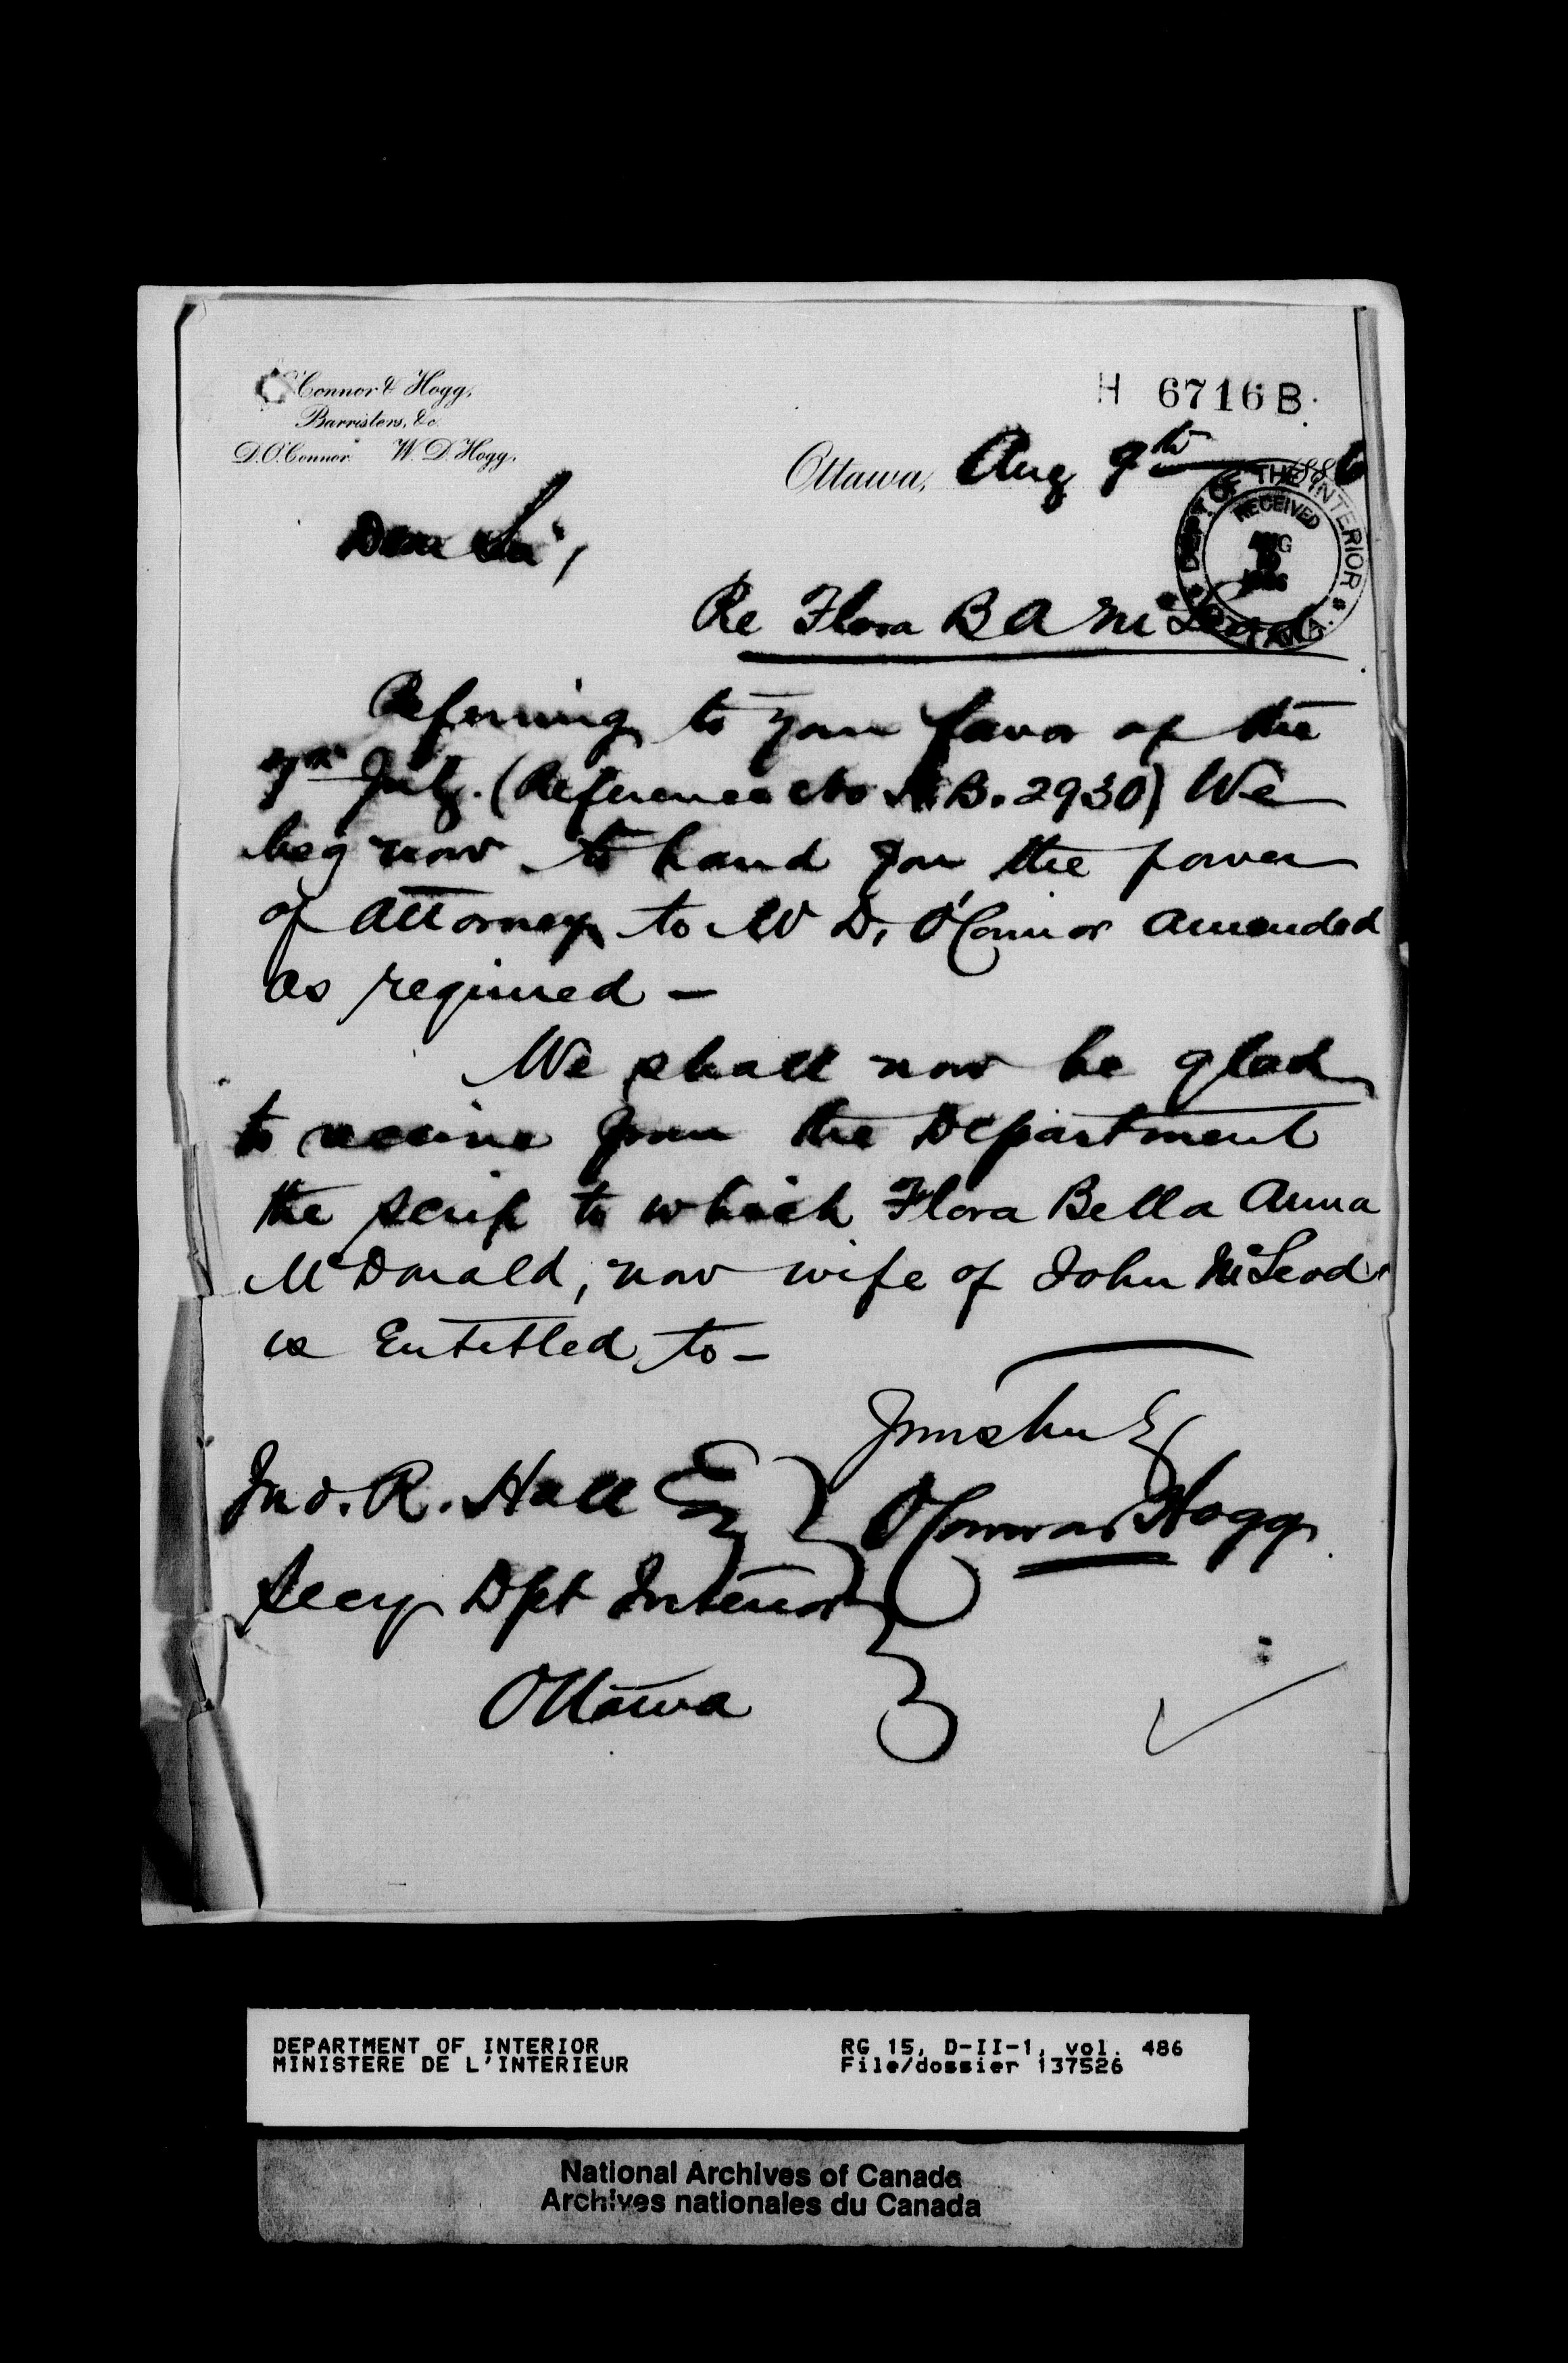 O'Connor & Hogg,
Barristers, &c.
D. O'Connor. W. D. Hogg.
H 6716 B.
Ottawa, Aug 9th 1886
DEPT OF THE INTERIOR
RECEIVED
AUG
1886
OTTAWA.
Dear Sir,
Re Flora B A McLeod
Referring to your favor of the
7th July. (Reference No H.B. 2930) We
beg now to hand you the power
of Attorney to Mr D. O'Connor amended
as required —
We shall now be glad
to receive from the Department
the scrip to which Flora Bella Anna
McDonald, now wife of John McLeod
is Entitled to —
Yours truly
O'Connor & Hogg
Jno. R. Hall Esq
Secy Dpt Interior
Ottawa
DEPARTMENT OF INTERIOR
MINISTERE DE L'INTERIEUR
RG 15, D-II-1, vol. 486
File/dossier 137526
National Archives of Canada
Archives nationales du Canada